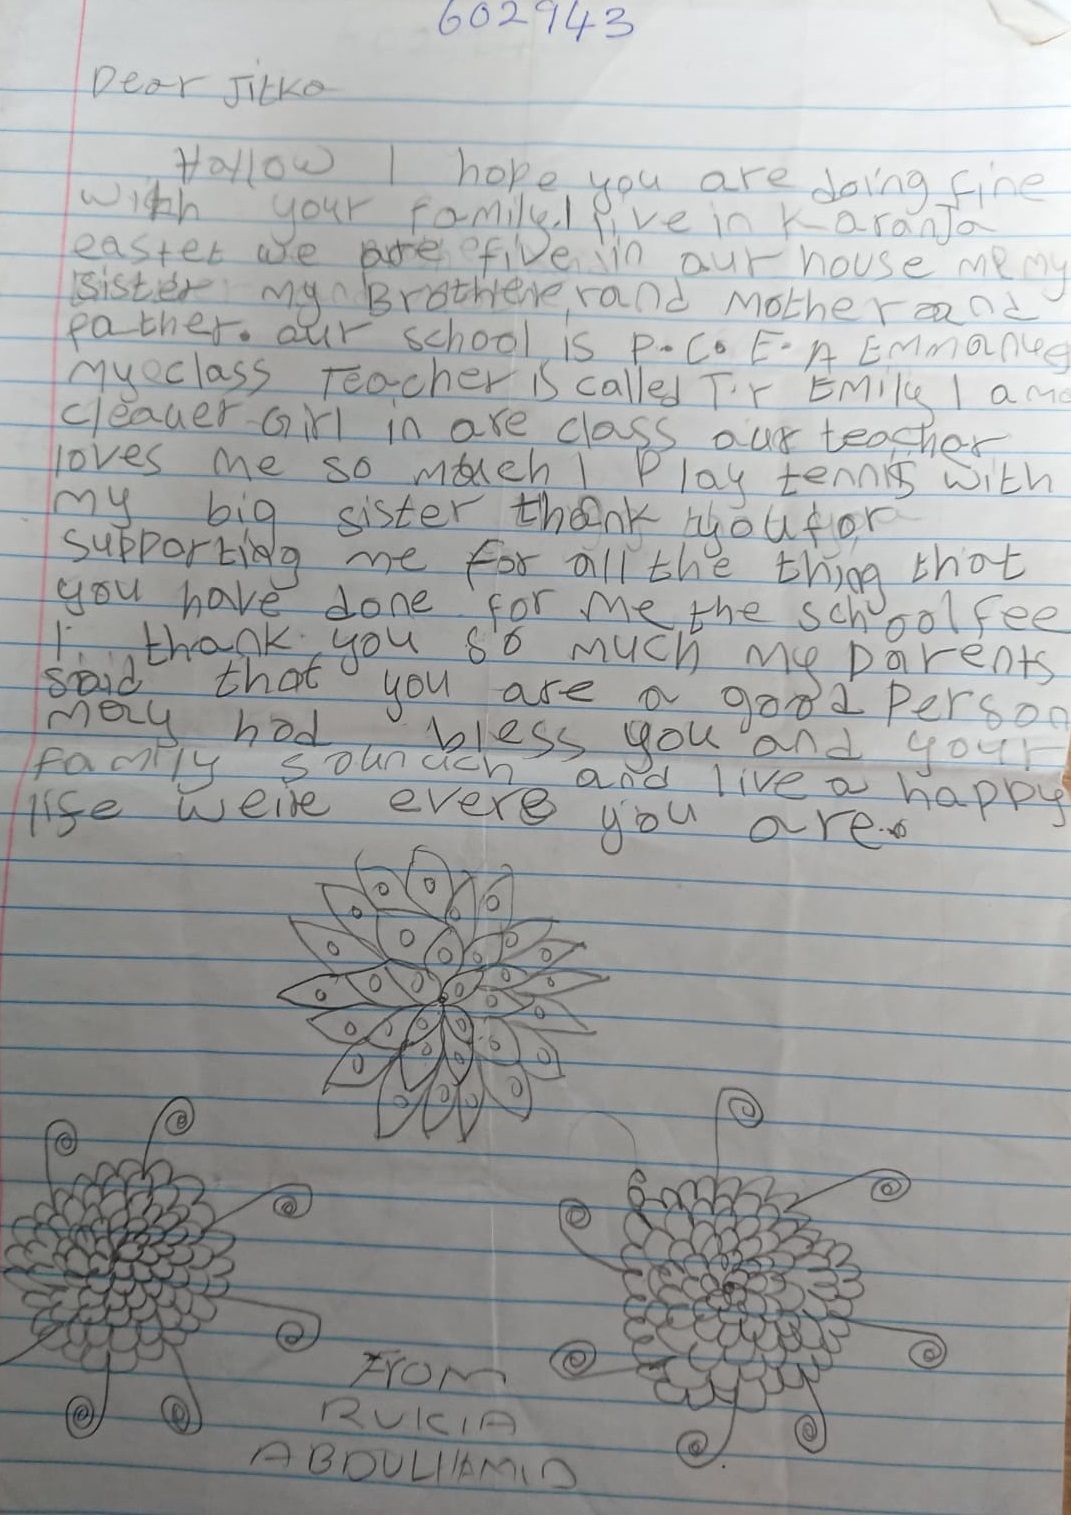 602943
Dear Jitka
Hallow I hope you are doing fine
with your family. I live in Karanja
easter we are five in aur house me my
sister my Brothere, and Mother and
father. aur school is P.C.E.A Emmanue
my class Teacher is called T.r EMily I am a
cleauer Girl in are class aur teacher
loves me so much I Play tennis with
my big sister thank you for
supporting me for all the thing that
you have done for me the school fee
I thank you so much my parents
said that you are a good Person
may hod bless you and your
family so and live a happy
life evere you are.
From
RUKIA
ABDULHAMID